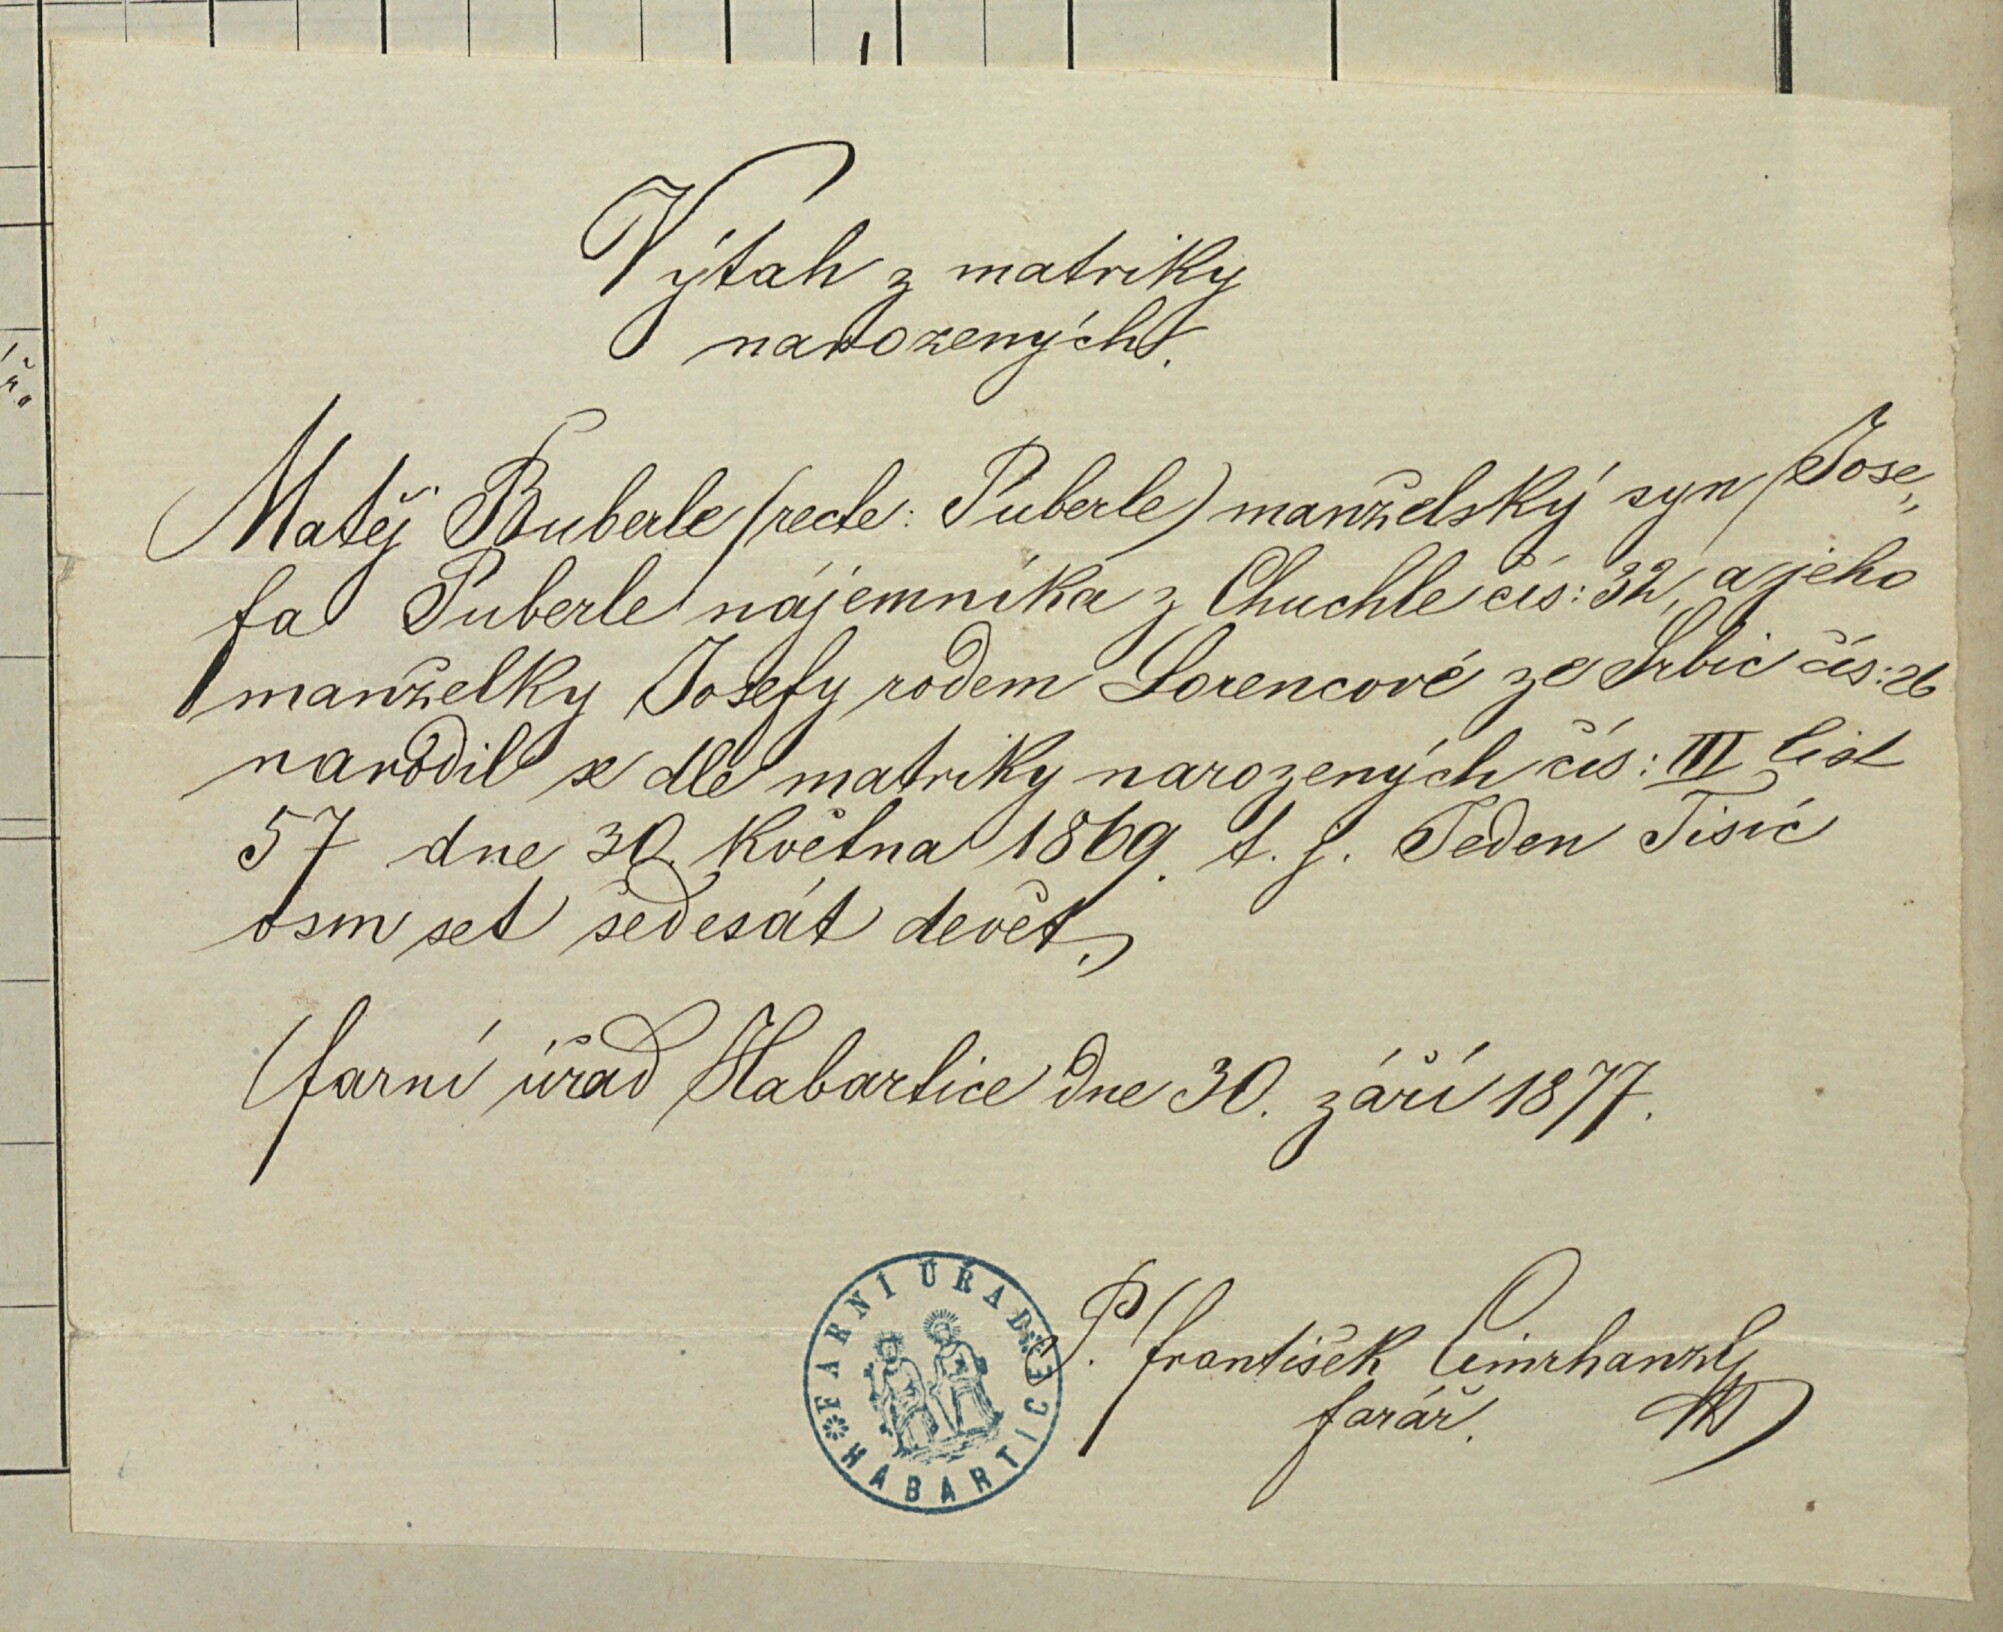 Výtah z matriky
narozených.
Matěj Buberle (recte: Puberle) manželský syn Jose„
fa Puberle nájemníka z Chuchle čís: 32, a jeho
manželky Josefy rodem Lorencové ze Srbic čís: 26
narodil se dle matriky narozených čís: III list
57 dne 30. května 1869. t. j. Jeden Tisíc
osm set šedesát devět.
Farní úřad Habartice dne 30. září 1877.
FARNÍ ÚŘAD HABARTICE
P. František Cimrhanzl
farář.